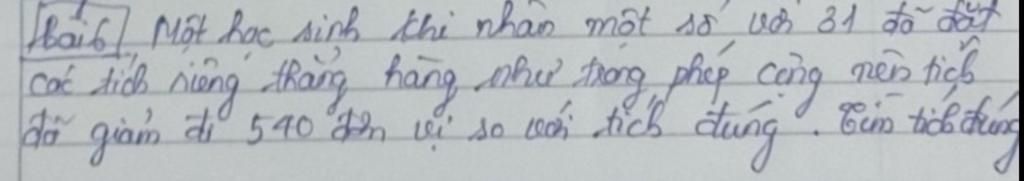 Bài 6 Một học sinh khi nhân một số với 31 đã đặt
các tích riêng thẳng hàng như trong phép cộng nên tích
đã giảm đi 540 đơn vị so với tích đúng. Tìm tích đúng